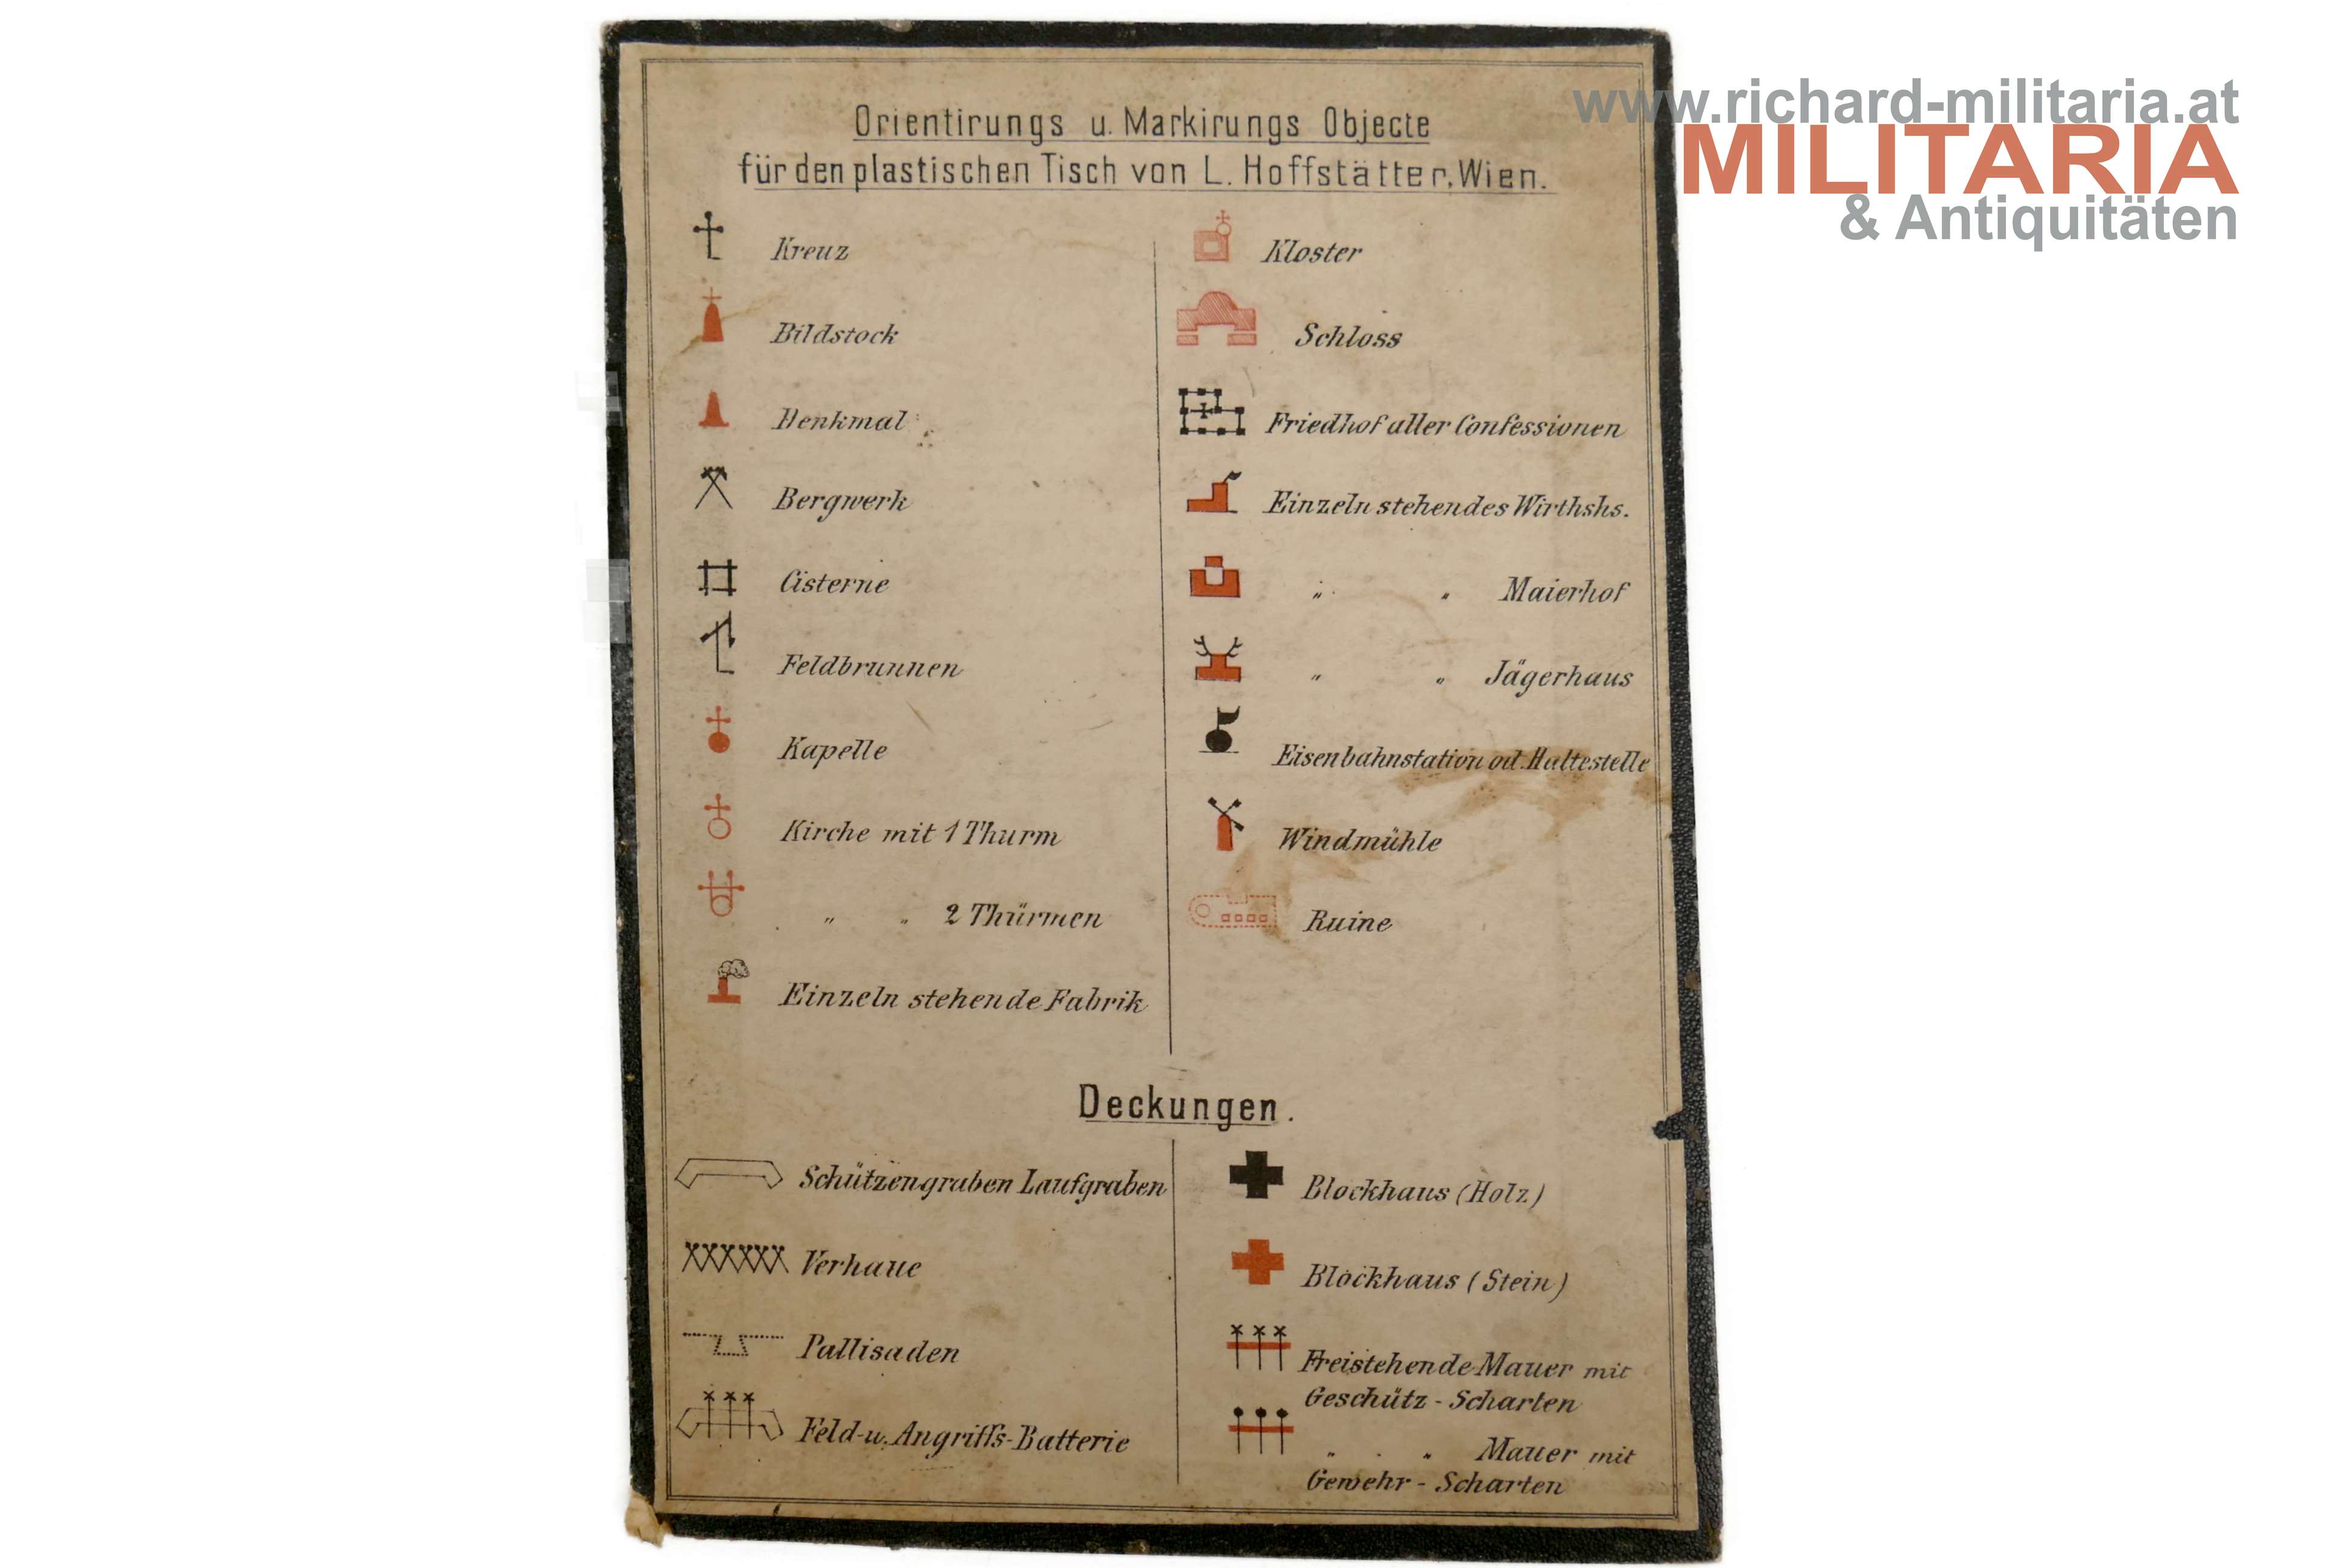 www.richard-militaria.at
MILITARIA
& Antiquitäten
Orientirungs u. Markirungs Objecte
für den plastischen Tisch von L. Hoffstätter, Wien.
Kreuz
Bildstock
Denkmal
Bergwerk
Cisterne
Feldbrunnen
Kapelle
Kirche mit 1 Thurm
" " 2 Thürmen
Einzeln stehende Fabrik
Kloster
Schloss
Friedhof aller Confessionen
Einzeln stehendes Wirthshs.
" " Maierhof
" " Jägerhaus
Eisenbahnstation od. Haltestelle
Windmühle
Ruine
Deckungen.
Schützengraben Laufgraben
Verhaue
Pallisaden
Feld-u. Angriffs-Batterie
Blockhaus (Holz)
Blockhaus (Stein)
Freistehende Mauer mit
Geschütz - Scharten
" " Mauer mit
Gewehr - Scharten